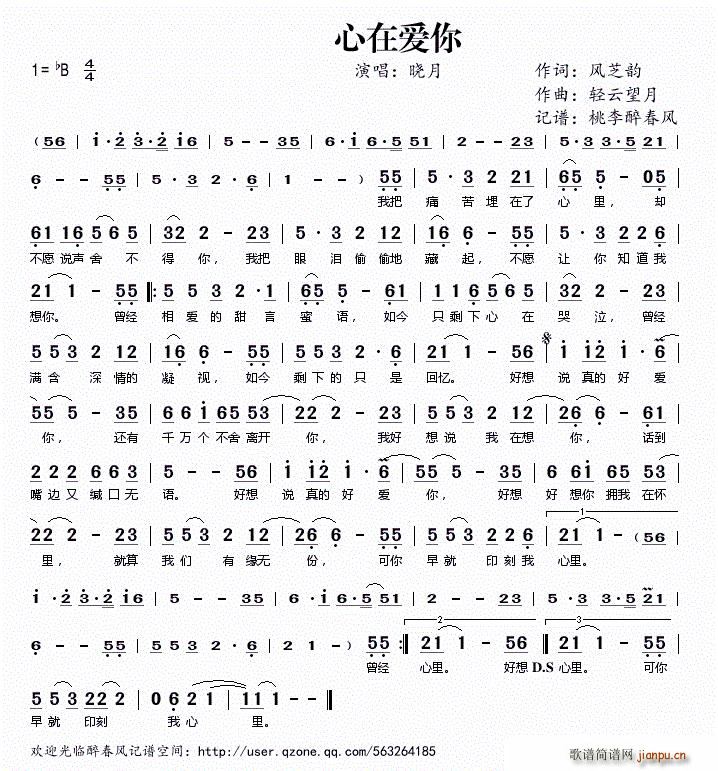 心在爱你
1=♭B 4/4 演唱：晓月 作词：风芝韵
作曲：轻云望月
记谱：桃李醉春风
(56 | i·2 3·2 i6 | 5 - - 35 | 6·i 6·5 51 | 2 - - 23 | 5·3 3·5 21 |
6 - - 55 | 5·3 2·6 | 1 - -) 55 | 5·3 2 21 | 65 5 - 05 |
我把 痛 苦 埋 在了 心 里， 却
61 16 5 6 5 | 32 2 - 23 | 5·3 2 12 | 16 6 - 55 | 5 5 3 2 3 5 |
不愿 说声 舍 不 得 你， 我把 眼 泪 偷偷地 藏 起， 不愿 让 你 知道我
21 1 - 55 |: 5·3 2 2·1 | 65 5 - 61 | 1 1 6 5 6 5 | 32 2 - 23 |
想你。 曾经 相 爱 的 甜 言 蜜 语， 如今 只 剩下 心 在 哭 泣， 曾经
5 5 3 2 12 | 16 6 - 55 | 5 5 3 2·6 | 21 1 - 56 | i i2 i·6 |
满 含 深 情的 凝 视， 如今 剩 下 的 只 是 回忆。 好想 说 真的 好 爱
55 5 - 35 | 6 6 i 65 53 | 22 2 - 23 | 5 5 3 2 12 | 26 6 - 61 |
你， 还有 千 万 个 不舍 离开 你， 我好 想 说 我 在想 你， 话到
2 2 2 6 6 3 | 5 - - 56 | i i2 i·6 | 55 5 - 56 | 6 6i 65 53 |
嘴 边 又 缄 口 无 语。 好想 说 真的 好 爱 你， 好想 好 想你 拥我 在怀
22 2 - 23 | 5 5 3 2 12 | 26 6 - 55 | 5 5 3 2 2 6 | 21 1 - (56 |
里， 就算 我 们 有 缘无 份， 可你 早 就 印 刻 我 心里。
i·2 3·2 i6 | 5 - - 35 | 6·i 6·5 51 | 2 - - 23 | 5·3 3·5 21 |
6 - - 55 | 5 5 3 2·6 | 21 1 -) 55 :| 21 1 - 56 | 21 1 - 55 |
曾经 心里。 好想 D.S 心里。 可你
5 5 3 22 2 | 0 6 2 1 | 11 1 - - ‖
早 就 印刻 我 心 里。
欢迎光临醉春风记谱空间：http://user.qzone.qq.com/563264185
歌谱简谱网
jianpu.cn